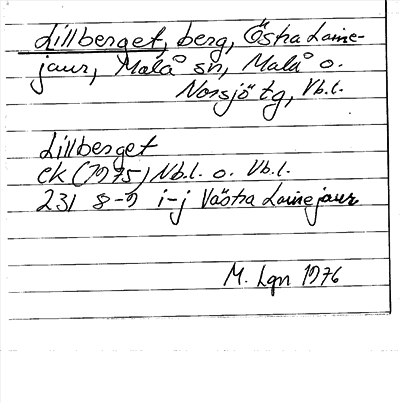 Lillberget, berg, Östra Laine-
jaur, Malå sn, Malå o.
Norsjö tg, Vb.l.
Lillberget
ek (1975) Nb.l. o. Vb.l.
231 8-9 i-j Västra Lainejaur
M. Lgn 1976